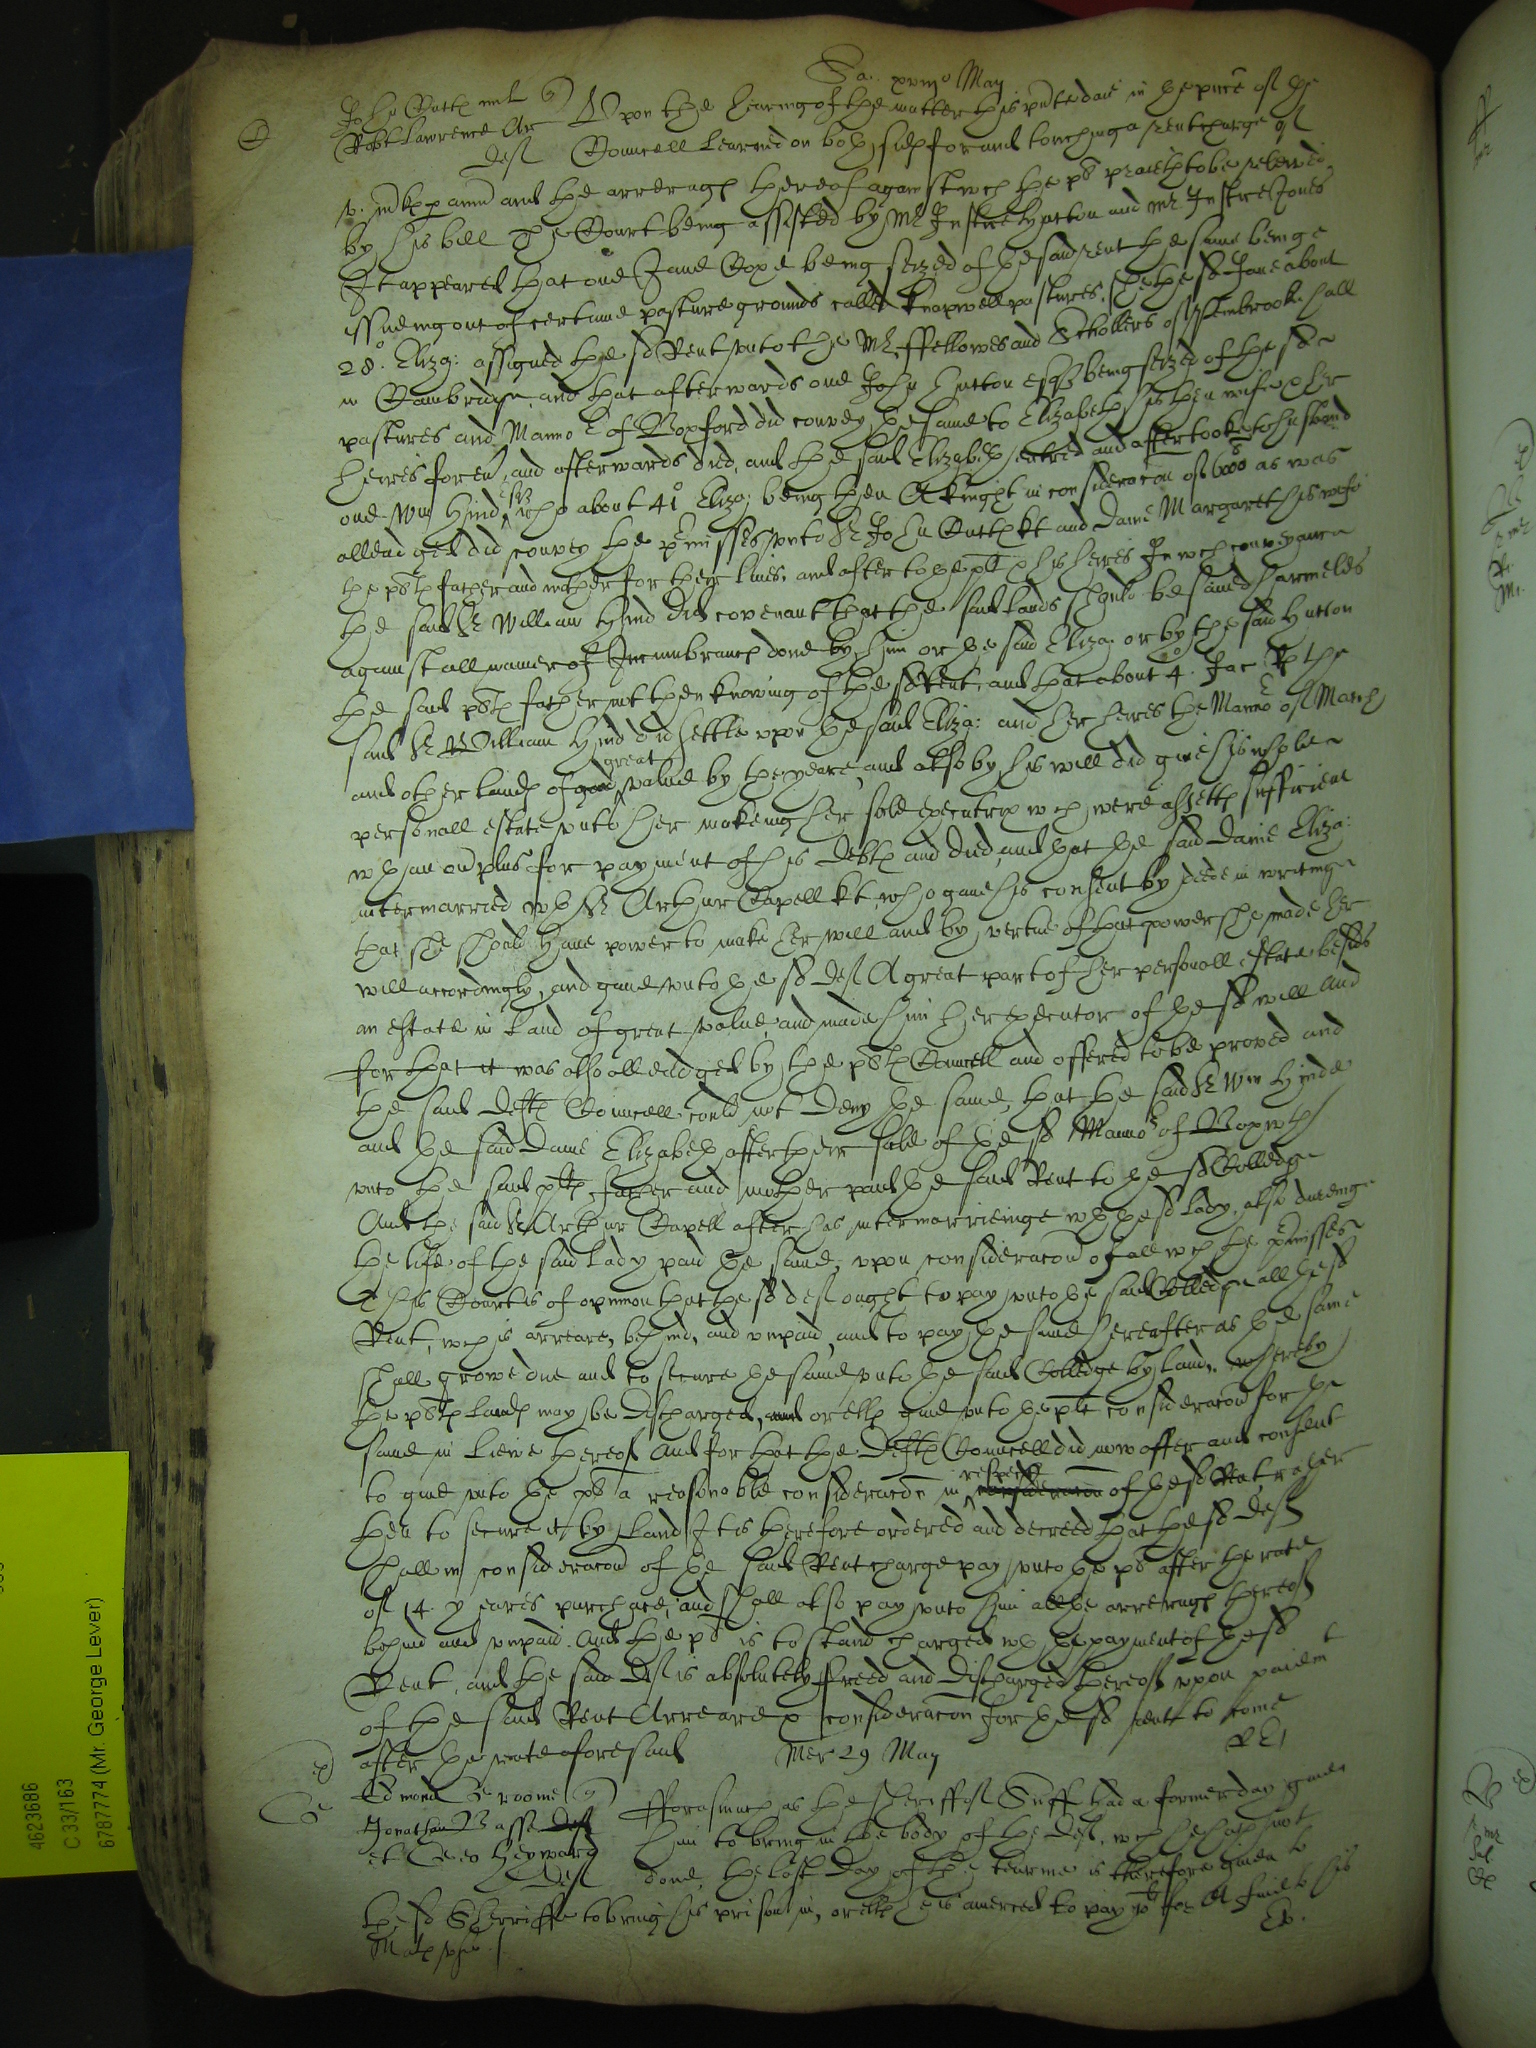 Sa. xviijo May
John Cutts mil
Robt Lawrence Ar Upon the hearing of the matter this pnte daie in the pnce of the
Deft Councell learned on both sids for and touching a rentcharge of
v. mks p ann and the arreragꝭ thereof against wch the pt praieth to be releived
by his bill The Court being assisted by Mr Justice Hutton and Mr Justice Jones
It appeared that one Jane Coxe being seized of the said rent the same being
issueing out of certaine pasture grounds called Knapwell pastures, she the sd Jane about
28o. Eliza: assigned the sd Rent unto the Mr ffellowes and Schollers of Pembrooke hall
in Cambridge, and that afterwards one John Hutton esqr being seized of the sd
pastures and Mannor of Boxford did convey the same to Elizabeth his then wife & her
heires for ever, and afterwards died, and the said Elizabeth entred and after tooke to husband
one Wm Hind esqr who about 41o Eliza: being then a knight in consideracon of as was
alleadged did convey the premisses unto Sr John Cutts kt and Dame Margaret his wife
the pltꝭ father and mother for their lives, and after to the plt & his heires In wch conveyance
the said Sr William Hind did covenant that the said lands should be saved harmeles
against all manner of Incumbrancꝭ done by him or the said Eliza: or by the said Hutton
the said pltꝭ father not then knowing of the sd Rent, and that about 4o. Jac R the
said Sr William Hind did settle upon the said Eliza: and her heires the Mannor of March
and other landꝭ of good great value by the yeare, and also by his will did give his whole
personall estate unto her makeing her sole executrix wch were assetts sufficient
wth an overplus for payment of his Debtꝭ and died, and that the said Dame Eliza:
intermarried wth Sr Arthur Capell kt, who gave his consent by deede in writing
that she should have power to make her will and by vertue of that power she made her
will accordingly, and gave unto the sd Deft A great part of her personall estate besids
an estate in land of great value, and made him her executor of the sd will And
for that it was also alleadged by the pltꝭ Councell and offered to be proved and
the said Deftꝭ Councell could not deny the same, that the said Sr Wm Hynde
and the said Dame Elizabeth after their sale of the sd Mannor of Boxwth
unto the said pltꝭ father and mother paid the said Rent to the sd Colledge
And the said Sr Arthur Capell after his intermarrieinge wth the sd Lady, also dureing
the life of the said Lady paid the same, upon consideracon of all wch the pmisses
This Court is of opinion that the sd deft ought to pay unto the said Colledge all the sd
Rent, wch is arreare, behind, and unpaid, and to pay the same hereafter as the same
shall growe due and to secure the same unto the said Colledge by land, whereby
the pltꝭ landꝭ may be discharged, and or ells give unto the plt consideracon for the
same in liewe thereof And for that the Deftꝭ Councell did now offer and consent
to give unto the plt a reasonable consideracon in respect consideracon of the sd Rent, rather
then to secure it by Land It is therefore ordered and decreed that the sd Deft
shall in consideracon of the said Rentcharge pay unto the plt after the rate
of 14. yeares purchace, and shall also pay unto him all the arreragꝭ thereof
behind and unpaid. And the plt is to stand charged wth the payment of the sd
Rent, and the said Deft is absolutely freed and discharged thereof upon paiemt
of the said Rent Arreare & consideracon for the sd rent to come
after the rate aforesaid
Mer 29 May
Edmond Geroome
Jonathan Basse Deft fforasmuch as the Sheriff of Suff had a former day given
et Geo Heyward him to bring in the body of the Deft, wch he hath not
Deft done, the last day of the tearme is therefore given to
the sd Sherriffe to bring his prison in, or ells he is amerced to pay xli for A fine to his
Matꝭ use.
4623686
C 33/163
6787774 (Mr. George Lever)